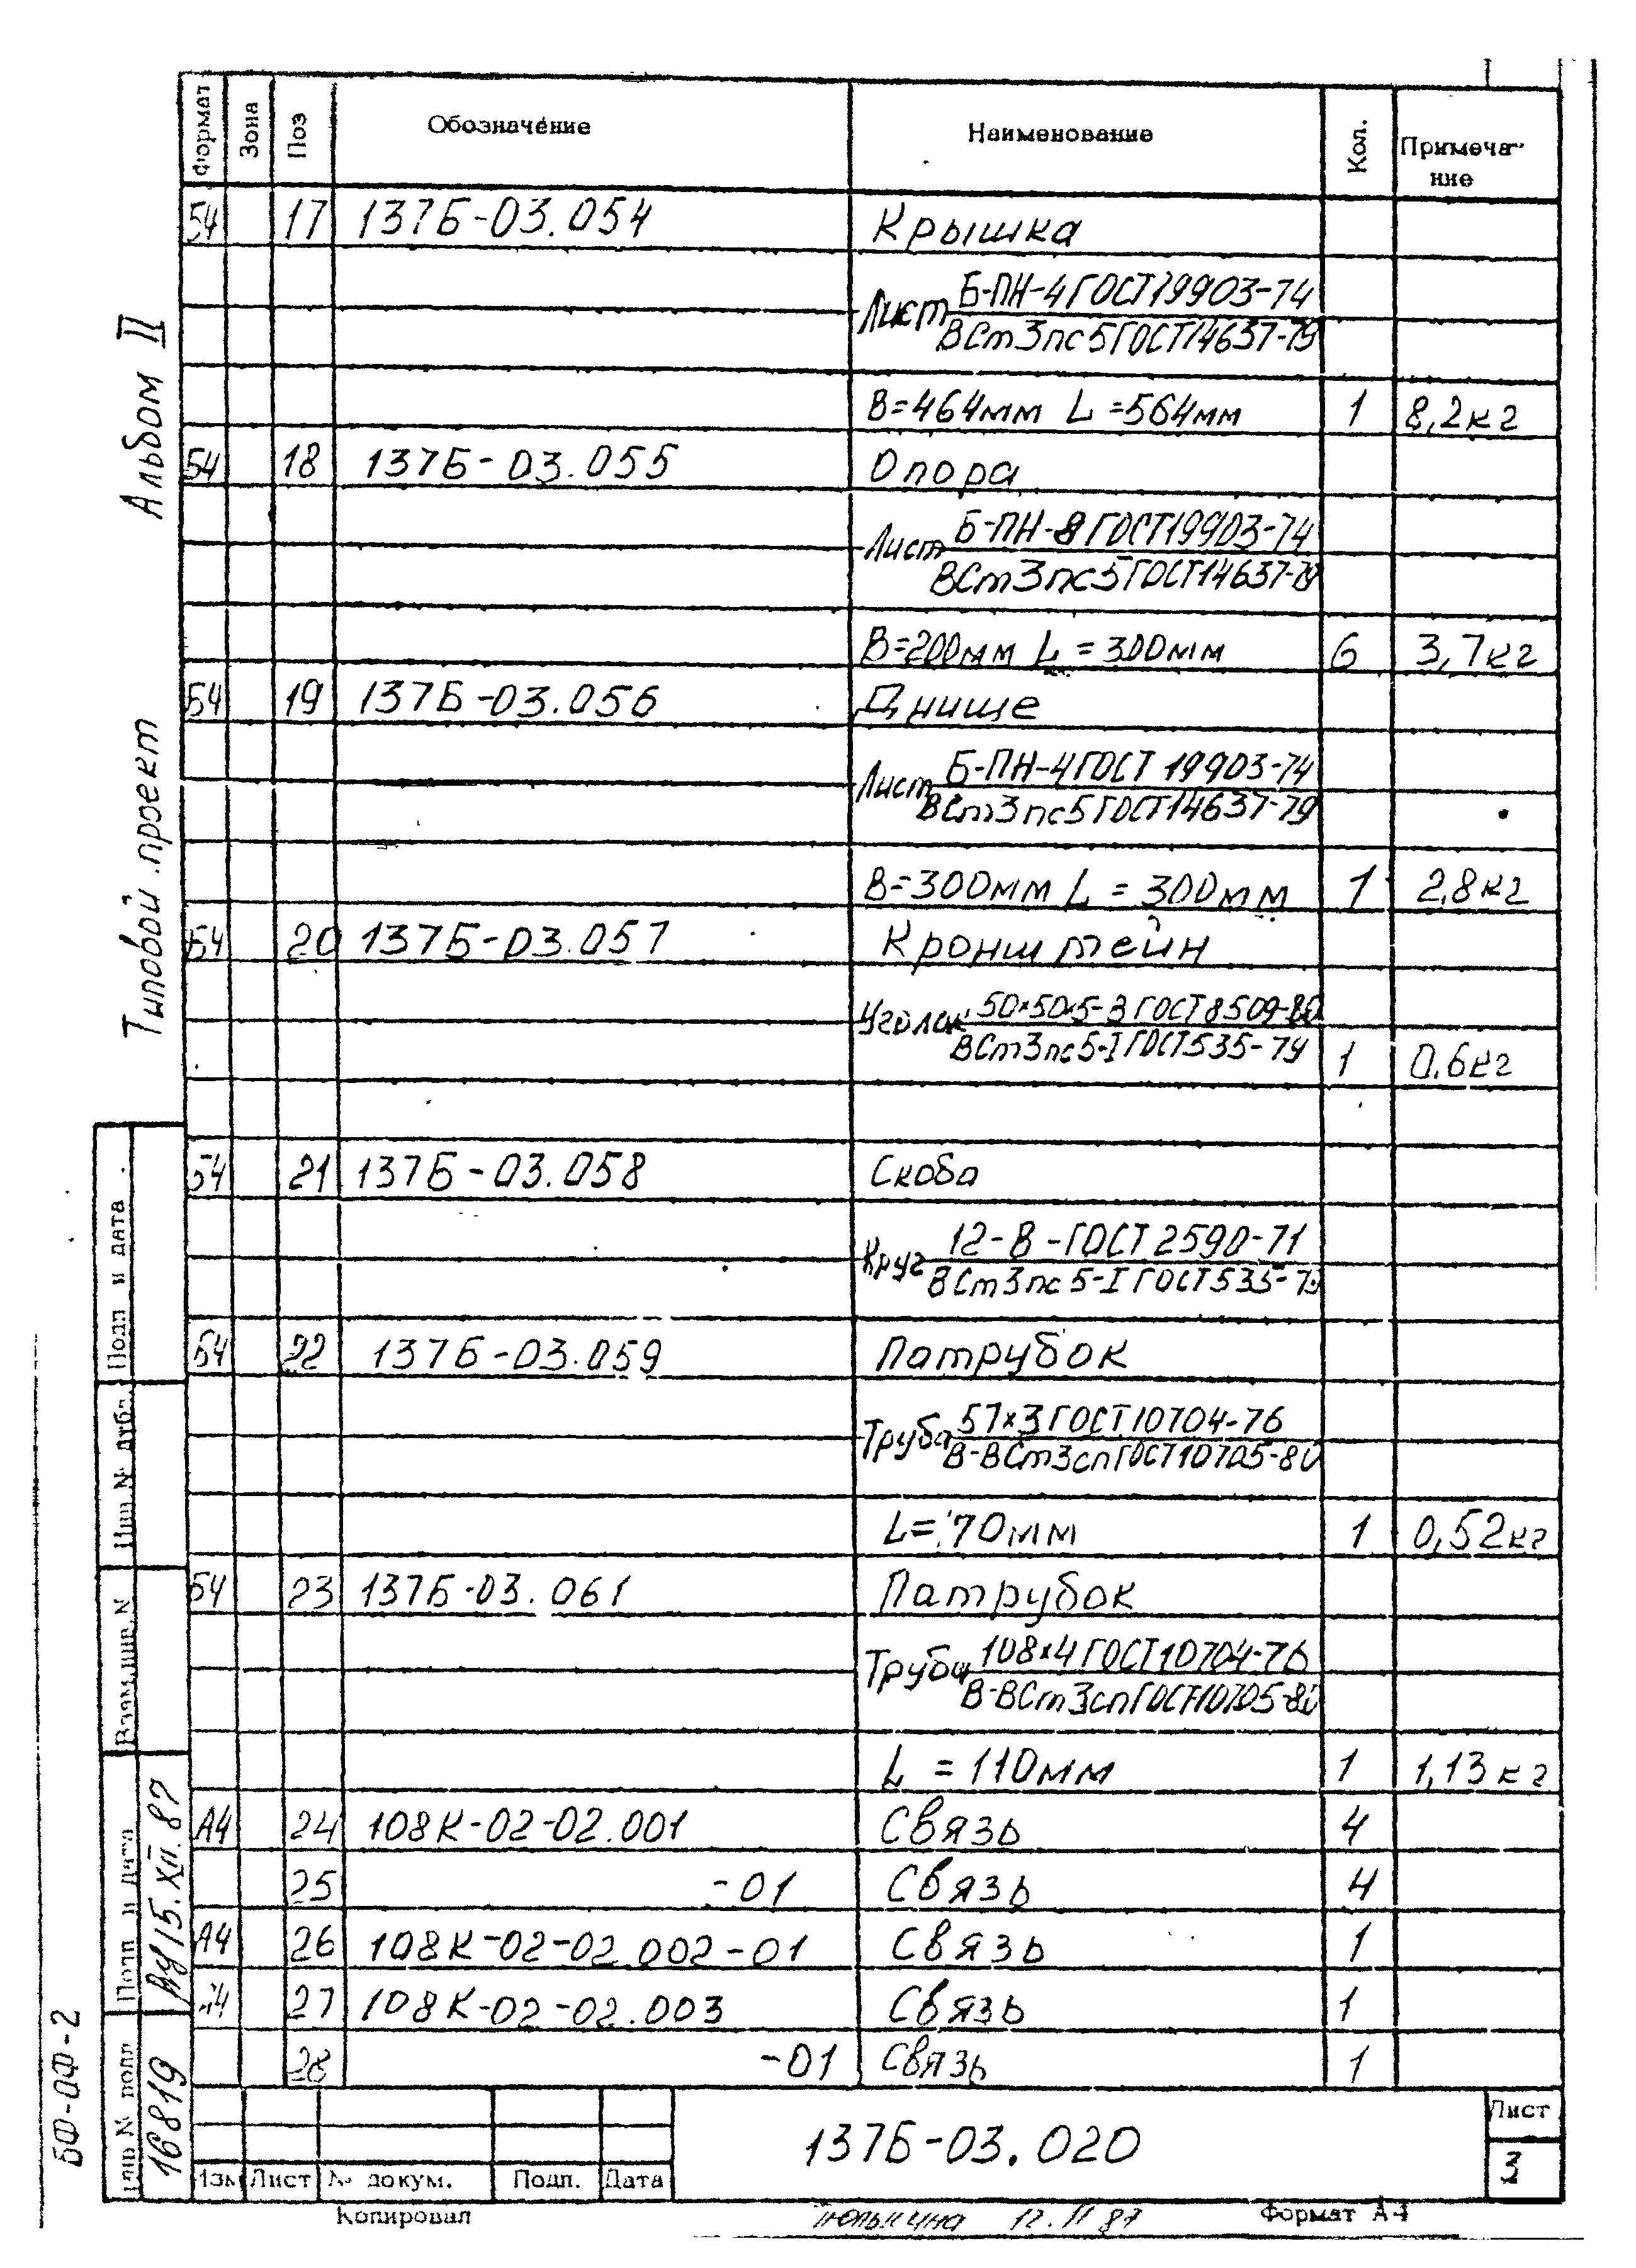 Формат Зона Поз Обозначение Наименование Кол. Примеча-
ние
Б4 17 137Б-03.054 Крышка
Лист Б-ПН-4 ГОСТ 19903-74
ВСт3пс5 ГОСТ 14637-79
В=464мм L=564мм 1 8,2кг
Б4 18 137Б-03.055 Опора
Лист Б-ПН-8 ГОСТ 19903-74
ВСт3пс5 ГОСТ 14637-79
В=200мм L=300мм 6 3,7кг
Б4 19 137Б-03.056 Днище
Лист Б-ПН-4 ГОСТ 19903-74
ВСт3пс5 ГОСТ 14637-79
В=300мм L=300мм 1 2,8кг
Б4 20 137Б-03.057 Кронштейн
Уголок 50×50×5-В ГОСТ 8509-86
ВСт3пс5-I ГОСТ 535-79 1 0.6кг
Б4 21 137Б-03.058 Скоба
Круг 12-В-ГОСТ 2590-71
ВСт3пс5-I ГОСТ 535-79
Б4 22 137Б-03.059 Патрубок
Труба 57×3 ГОСТ 10704-76
В-ВСт3сп ГОСТ 10705-80
L=70мм 1 0,52кг
Б4 23 137Б-03.061 Патрубок
Труба 108×4 ГОСТ 10704-76
В-ВСт3сп ГОСТ 10705-80
L=110мм 1 1,13кг
А4 24 108К-02-02.001 Связь 4
25 -01 Связь 4
А4 26 108К-02-02.002-01 Связь 1
А4 27 108К-02-02.003 Связь 1
28 -01 Связь 1
137Б-03.020
Лист
3
Изм Лист № докум. Подп. Дата
Копировал Тюлькина 12.11.87 Формат А4
Альбом II
Типовой проект
Подп и дата
Инв № дубл.
Взам.инв.N
Подп и дата
15.XII.87
Инв № подп
16819
БФ-ОФ-2